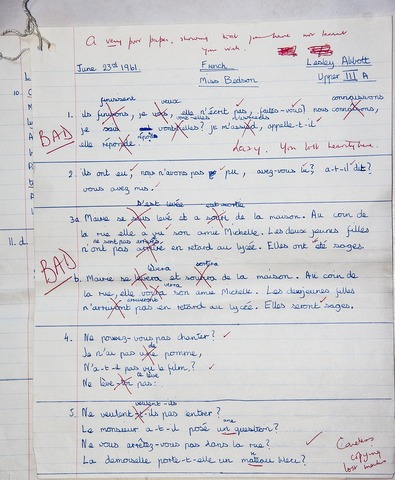 A very poor paper, showing that you have not learnt
your work.
June 23rd 1961. French Lesley Abbott
Miss Bedson Upper III A
10.
finissent veux connaissons
1. ils finissons, je vous, elle n'écrit pas, faites-vous? nous connaisons,
BAD
je m'assied, appelle-t-il
elle réponde. Lazy. You lost
2. ils ont eu, nous n'avons pas pu, avez-vous lu?, a-t-il dit?
vous avez mis.
s'est levée est sortie
3a Marie se levé et a de la maison. Au coin de
la rue elle a vu son amie Michelle. Les deux jeunes filles
ne sont pas arrivées
n'ont pas arrivé en retard au lycée. Elles ont été sages.
11. d
BAD
lèvera sortira
b. Marie se levera et de la maison. Au coin de
verra
la rue, elle voira son amie Michelle. Les deux jeunes filles
arriveront
n'arriyont pas en retard au lycée. Elles seront sages.
4. Ne pouvez-vous pas chanter?
de
Je n'ai pas une pomme,
N'a-t-il pas vu le film?
te lève
Ne lève pas:
veulent-ils
5. Ne veulent-t-ils pas entrer?
une
Le monsieur a-t-il posé un question?
Ne vous arrêtez-vous pas dans la rue?
La demoiselle porte-t-elle un mateau bleu?
Careless
copying
lost marks